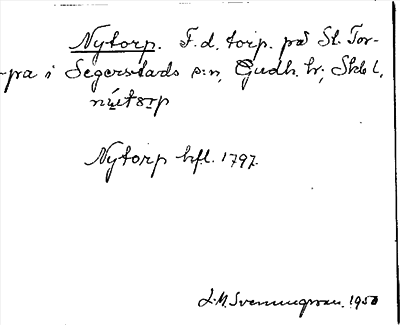 Nytorp. F. d. torp. på St. Tor-
-pa i Segerstads s:n, Gudh. hr; Skbl,
Nytorp hfl. 1797.
J. M. Svenungsson. 1950